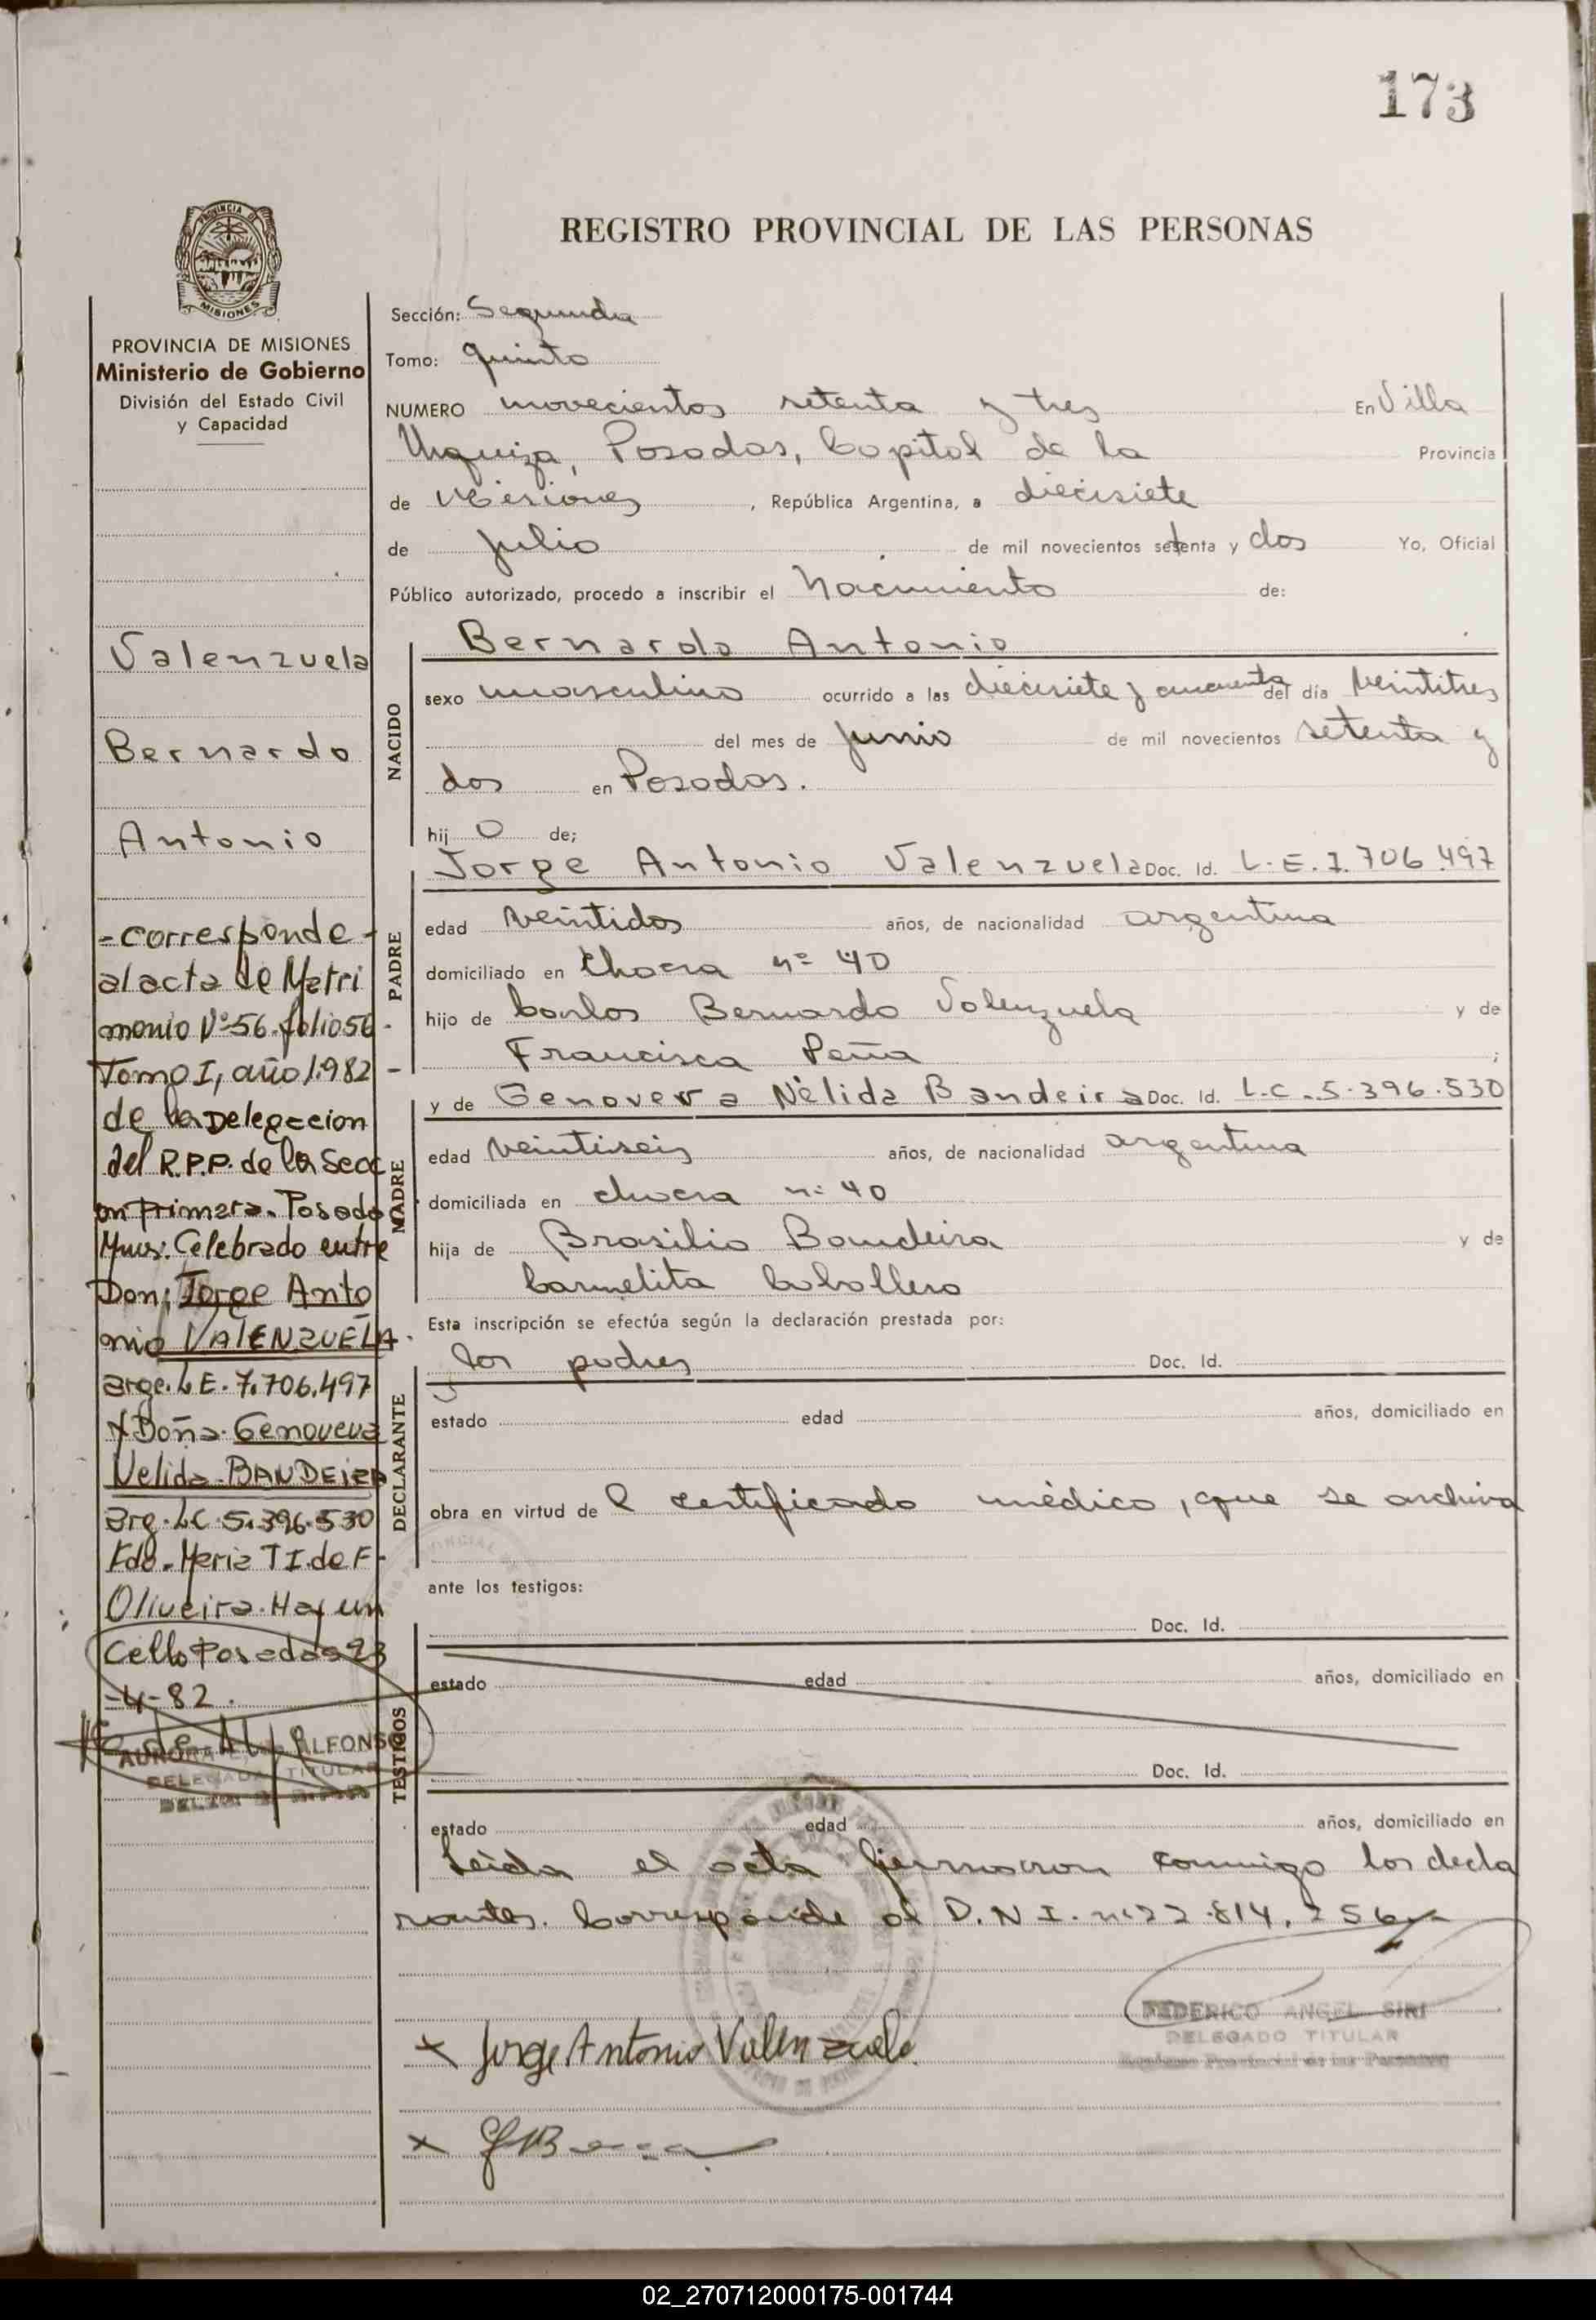 173
PROVINCIA DE
MISIONES
REGISTRO PROVINCIAL DE LAS PERSONAS
PROVINCIA DE MISIONES
Ministerio de Gobierno
División del Estado Civil
y Capacidad
Valenzuela
Bernardo
Antonio
-corresponde-
al acta de Matri
monio Nº 56. folio 56-
Tomo I, año 1.982-
de la Delegacion
del R.P.P. de la Secc
on Primera. Posadas
Mnes: Celebrado entre
Don; Jorge Anto
nio VALENZUELA.
arge. L E. 7.706.497
Y Doña. Genoveva
Nelida BANDEIRA
arg. LC. 5.396.530
Fdo. Maria T I. de F-
Oliveira. Hay un
Cello Posadas 23
-4-82.
AURORA ALFONSO
DELEGADA TITULAR
Sección: Segunda
Tomo: quinto
NUMERO novecientos setenta y tres En Villa
Urquiza, Posadas, Capital de la Provincia
de Misiones , República Argentina, a diecisiete
de julio de mil novecientos setenta y dos Yo, Oficial
Público autorizado, procedo a inscribir el Nacimiento de:
NACIDO
Bernardo Antonio
sexo masculino ocurrido a las diecisiete y cuarenta del día veintitres
del mes de junio de mil novecientos setenta y
dos en Posadas.
hij o de;
PADRE
Jorge Antonio Valenzuela Doc. Id. L.E. 7.706.497
edad veintidos años, de nacionalidad argentina
domiciliado en Chacra nº 40
hijo de Carlos Bernardo Valenzuela y de
Francisca Peña ;
MADRE
y de Genoveva Nélida Bandeira Doc. Id. L.C. 5.396.530
edad veintiseis años, de nacionalidad argentina
domiciliada en chacra nº 40
hija de Brasilio Bandeira y de
Carmelita Caballero
Esta inscripción se efectúa según la declaración prestada por:
DECLARANTE
los padres Doc. Id.
estado edad años, domiciliado en
obra en virtud de l certificado médico, que se archiva
ante los testigos:
TESTIGOS
Doc. Id.
estado edad años, domiciliado en
Doc. Id.
estado edad años, domiciliado en
Leída el acta firmaron conmigo los decla
rantes. Corresponde al D.N.I. nº 22.814.256
FEDERICO ANGEL SIRI
DELEGADO TITULAR
Registro Provincial de las Personas
x Jorge Antonio Valenzuela
x
02_270712000175-001744